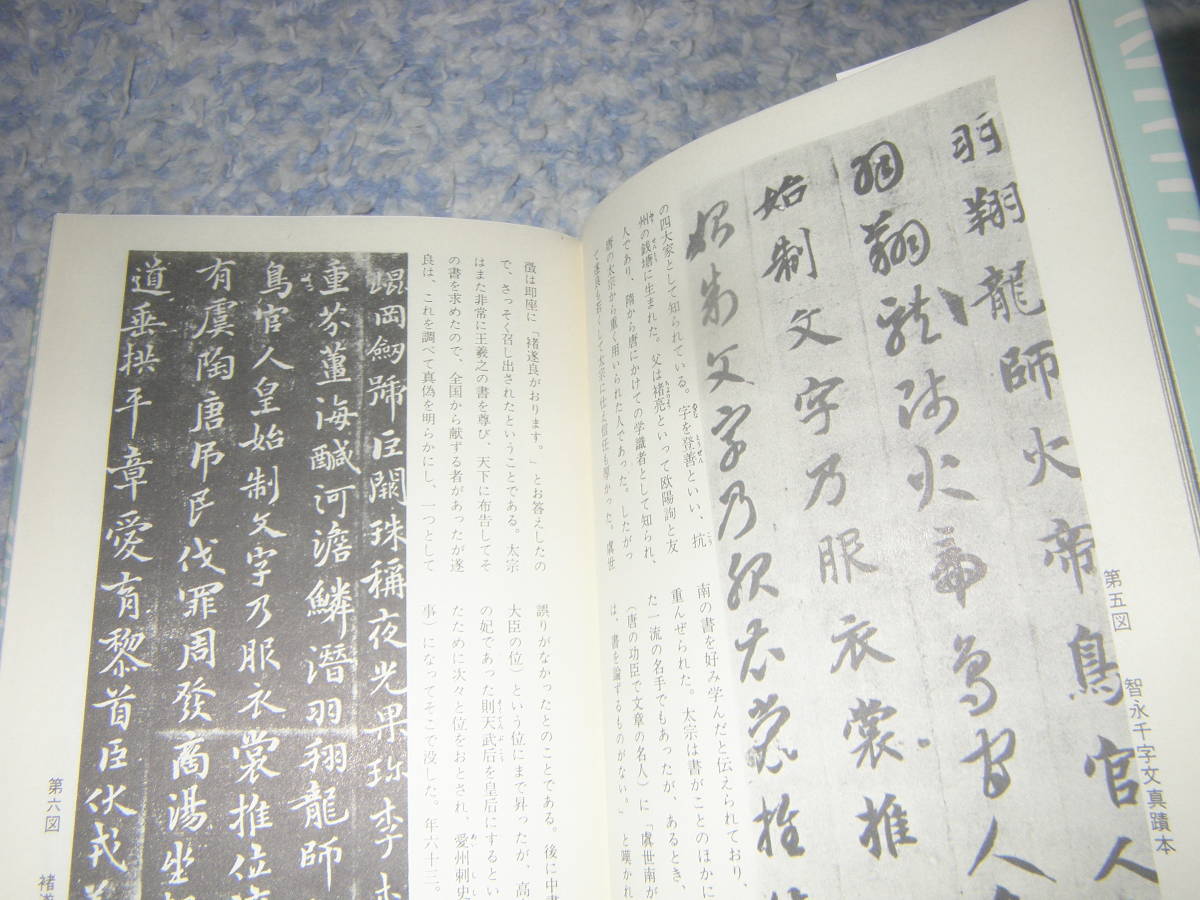 第五図　智永千字文真蹟本
羽翔龍師火帝鳥官人
羽翔龍師火帝鳥官人
始制文字乃服衣裳推
始制文字乃服衣裳推
の四大家として知られている。字を登善といい、抗
州の銭塘に生まれた。父は褚亮といって欧陽詢と友
人であり、隋から唐にかけての学識者として知られ、
唐の太宗から重く用いられた人であった。したがっ
て遂良も若くして太宗に仕え信任も厚かった。虞世
南の書を好み学んだと伝えられており、
重んぜられた。太宗は書がことのほかに
た一流の名手でもあったが、あるとき、
（唐の功臣で文章の名人）に「虞世南が
は、書を論ずるものがない。」と嘆かれ
徴は即座に「褚遂良がおります。」とお答えしたの
で、さっそく召し出されたということである。太宗
はまた非常に王羲之の書を尊び、天下に布告してそ
の書を求めたので、全国から献ずる者があったが遂
良は、これを調べて真偽を明らかにし、一つとして
誤りがなかったとのことである。後に中書
大臣の位）という位にまで昇ったが、高
の妃であった則天武后を皇后にするとい
たために次々と位をおとされ、愛州刺史
事）になってそこで没した。年六十三。
崐岡劒號巨闕珠稱夜光果珍李
重芥薑海鹹河澹鱗潛羽翔龍師
鳥官人皇始制文字乃服衣裳推位
有虞陶唐弔民伐罪周發商湯坐
道垂拱平章愛育黎首臣伏戎
第六図　褚